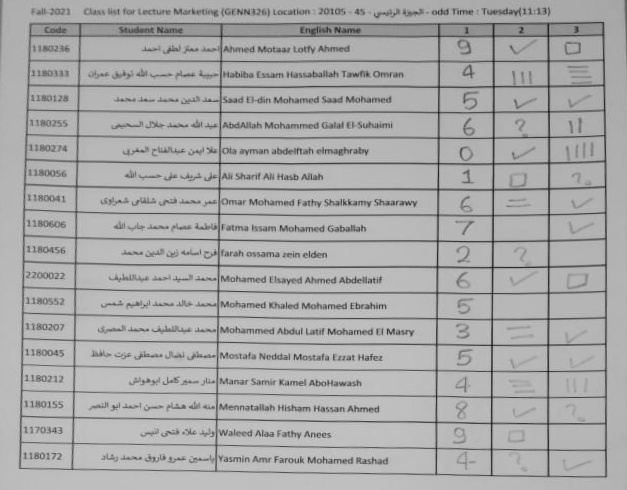 Fall-2021 Class list for Lecture Marketing (GENN326) Location : 20105 - 45 - الجيزة الرئيسي - odd Time : Tuesday(11:13)
Code Student Name English Name 1 2 3
1180236 احمد معتز لطفى احمد Ahmed Motaar Lotfy Ahmed 9 ✓ □
1180333 حبيبة عصام حسب الله توفيق عمران Habiba Essam Hassaballah Tawfik Omran 4 ||| ≡
1180128 سعد الدين محمد سعد محمد Saad El-din Mohamed Saad Mohamed 5 ✓ ✓
1180255 عبد الله محمد جلال السحيمى AbdAllah Mohammed Galal El-Suhaimi 6 ? ||
1180274 علا ايمن عبدالفتاح المغربى Ola ayman abdelftah elmaghraby 0 ✓ ||||
1180056 على شريف على حسب الله Ali Sharif Ali Hasb Allah 1 □ ?
1180041 عمر محمد فتحى شلقامى شعراوى Omar Mohamed Fathy Shalkkamy Shaarawy 6 = ✓
1180606 فاطمة عصام محمد جاب الله Fatma Issam Mohamed Gaballah 7 ✓
1180456 فرح اسامه زين الدين محمد farah ossama zein elden 2 ?
2200022 محمد السيد احمد عبداللطيف Mohamed Elsayed Ahmed Abdellatif 6 ✓ □
1180552 محمد خالد محمد ابراهيم شمس Mohamed Khaled Mohamed Ebrahim 5
1180207 محمد عبداللطيف محمد المصرى Mohammed Abdul Latif Mohamed El Masry 3 = ✓
1180045 مصطفى نضال مصطفى عزت حافظ Mostafa Neddal Mostafa Ezzat Hafez 5 ✓ ✓
1180212 منار سمير كامل ابوهواش Manar Samir Kamel AboHawash 4 ≡ |||
1180155 منه الله هشام حسن احمد ابو النصر Mennatallah Hisham Hassan Ahmed 8 ✓ ?
1170343 وليد علاء فتحى انيس Waleed Alaa Fathy Anees 9 □
1180172 ياسمين عمرو فاروق محمد رشاد Yasmin Amr Farouk Mohamed Rashad 4 ? ✓